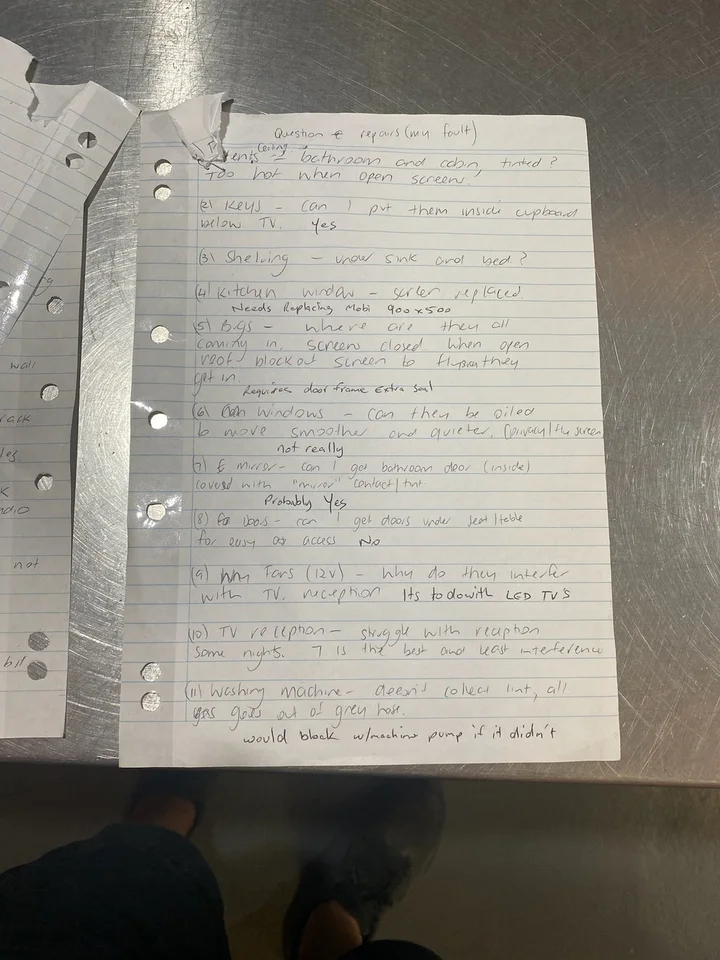 Question & repairs (my fault)
Ceiling
vents = bathroom and cabin tinted?
Too hot when open screens!
(2) Keys - can I put them inside cupboard
below TV. Yes
(3) Shelving - under sink and bed?
(4) Kitchen window - screen replaced
Needs Replacing Mobi 900x500
(5) Bugs - where are they all
coming in. screens closed when open
roof blockout screen to they
get in.
Requires door frame Extra Seal
(6) Windows - can they be oiled
to move smoother and quieter. (privacy/the screen
not really
(7) mirror - can I get bathroom door (inside)
covered with "mirror" contact/tint
Probably Yes
(8) Doors - can I get doors under seat/table
for easy access No
(9) Fans (12V) - Why do they interfer
with TV. reception Its to dowith LED TV'S
(10) TV reception - struggle with reception
some nights. 7 is the best and least interference
(11) Washing machine - doesn't collect lint, all
goes out of grey hose.
would block w/machine pump if it didn't
wall
rack
not